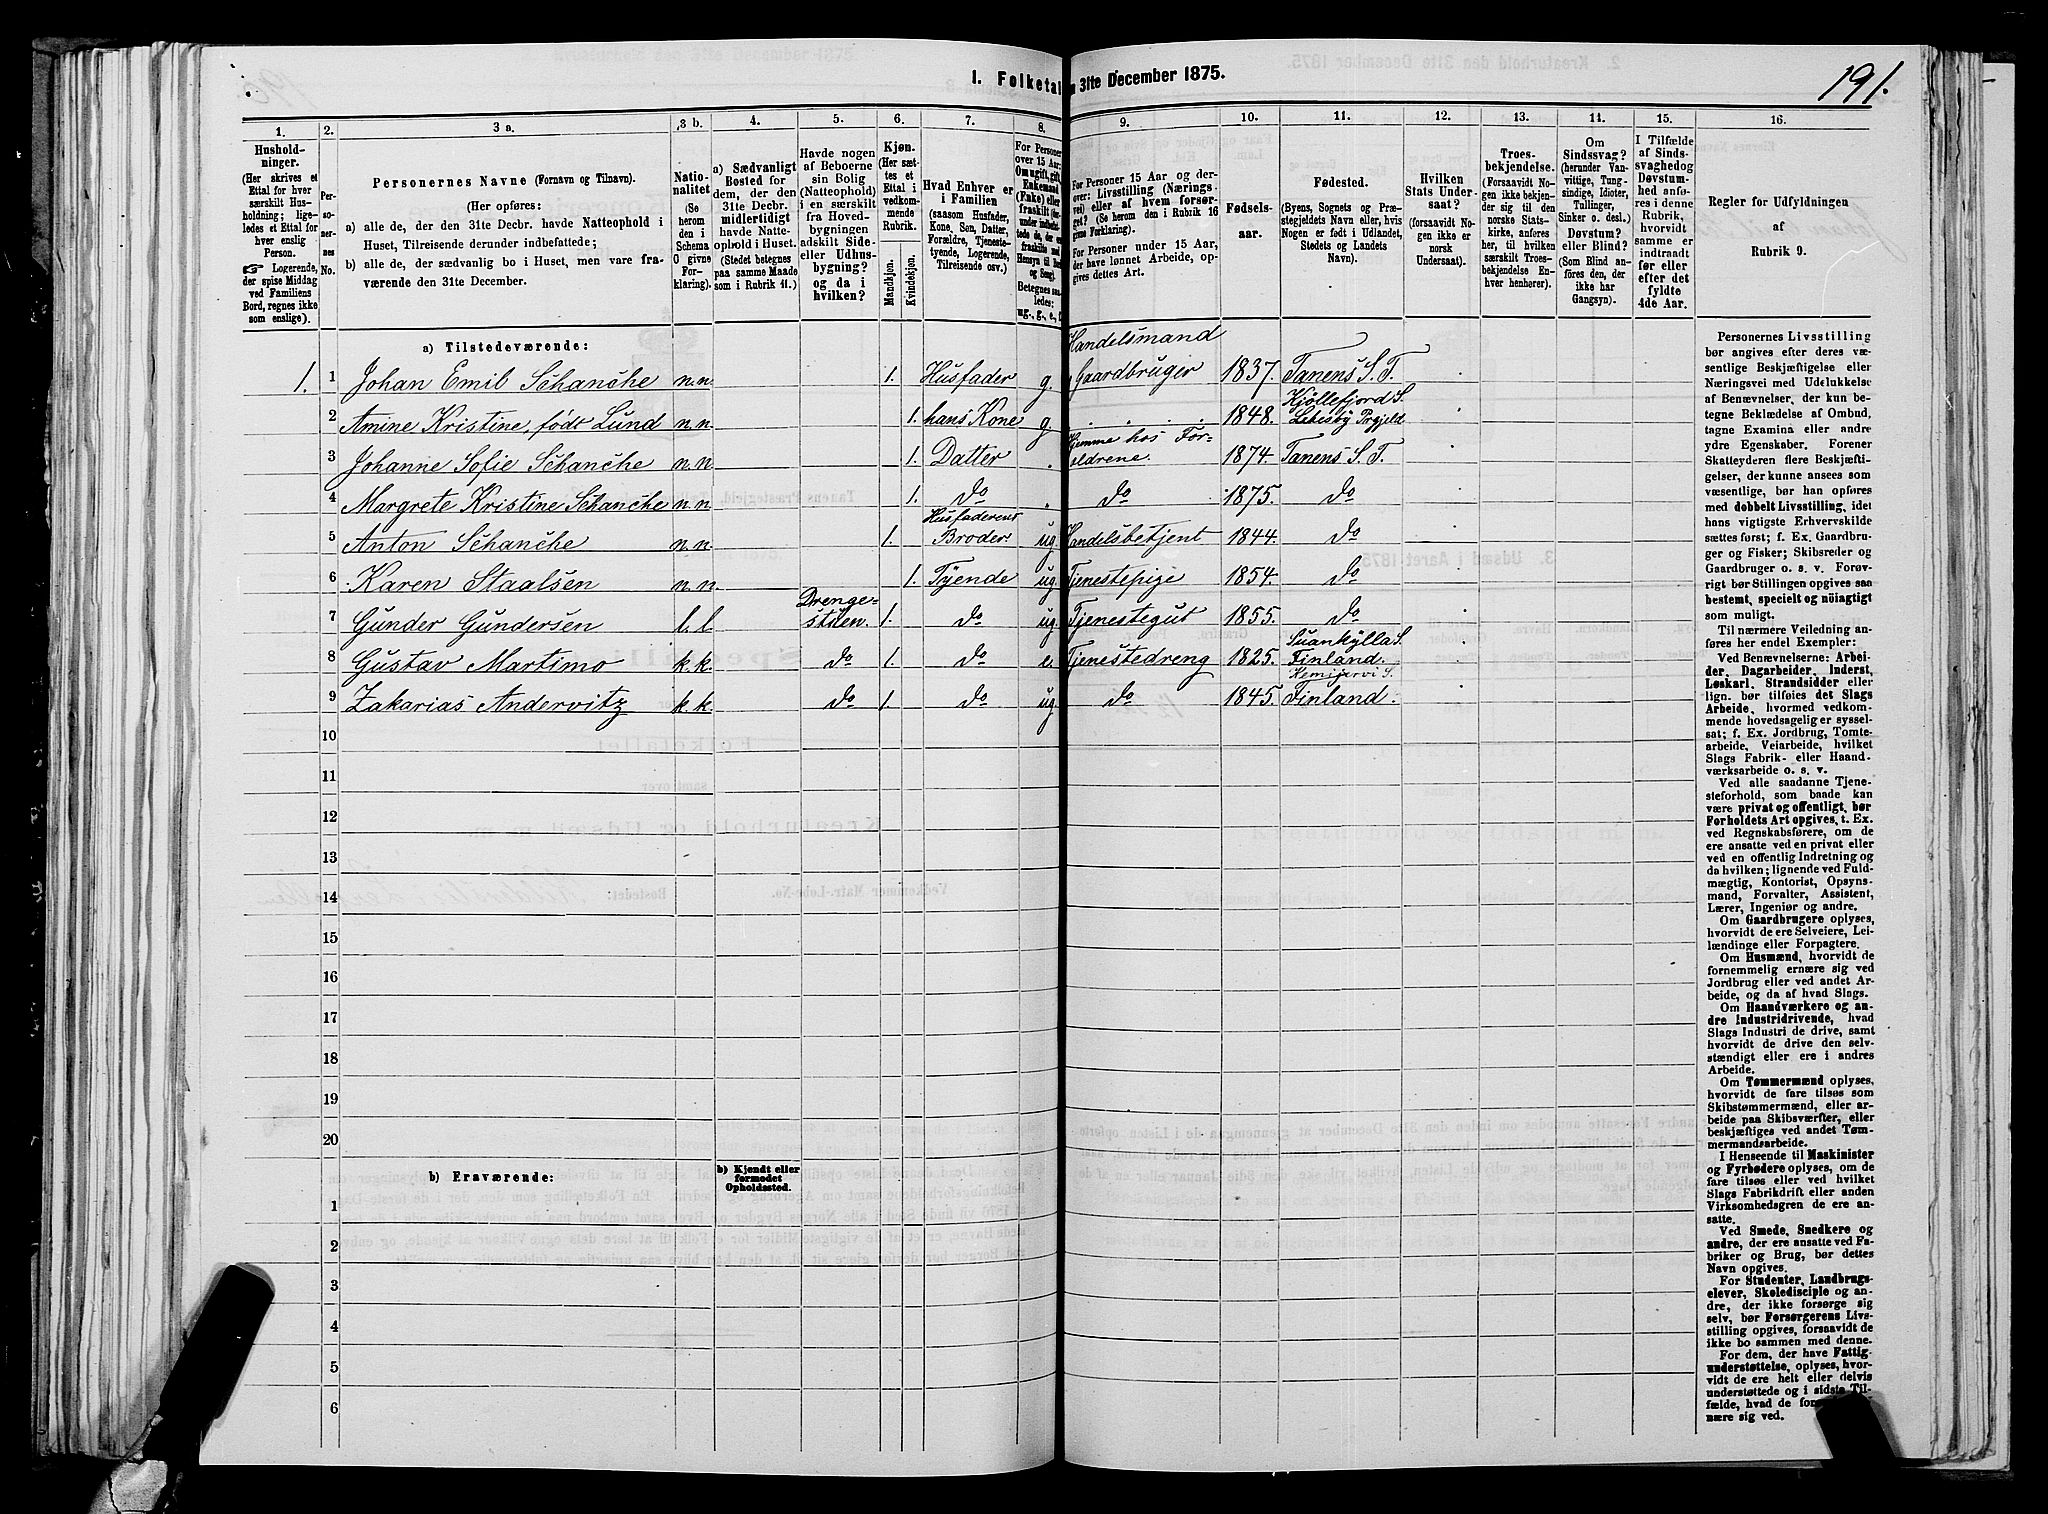 191.
I. Folketal
n 31te December 1875.
1. 2. 3 a. 3 b. 4. 5. 6. 7. 8. 9. 10. 11. 12. 13. 14. 15. 16.
Hushold-
ninger.
(Her skrives et
Ettal for hver
særskilt Hus-
holdning; lige-
ledes et Ettal for
hver enslig
Person.
☞ Logerende,
der spise Middag
ved Familiens
Bord, regnes ikke
som enslige).
Per-
so-
ner-
nes
No.
Personernes Navne (Fornavn og Tilnavn).
(Her opføres:
a) alle de, der den 31te Decbr. havde Natteophold i
Huset, Tilreisende derunder indbefattede;
b) alle de, der sædvanlig bo i Huset, men vare fra-
værende den 31te December.
Natio-
nalitet
(Se
herom
den i
Schema
O givne
For-
klaring).
a) Sædvanligt
Bosted for
dem, der den
31te Decbr.
midlertidigt
havde Natte-
ophold i Huset.
(Stedet betegnes
paa samme Maade
som i Rubrik 11.)
Havde nogen
af Beboerne
sin Bolig
(Natteophold)
i en særskilt
fra Hoved-
bygningen
adskilt Side-
eller Udhus-
bygning?
og da i
hvilken?
Kjøn.
(Her sæt-
tes et
Ettal i
vedkom-
mende
Rubrik.
Mandkjøn.
Kvindekjøn.
Hvad Enhver er
i Familien
(saasom Husfader,
Kone, Søn, Datter,
Forældre, Tjeneste-
tyende, Logerende,
Tilreisende osv.).
For Personer
over 15 Aar:
Om ugift, gift,
Enkemand
(Enke) eller
fraskilt
Betegnes saa-
ledes:
ug., g., e., f.
For Personer 15 Aar og der-
over: Livsstilling (Nærings-
vei) eller af hvem forsør-
get? (Se herom den i Rubrik 16
givne Forklaring).
For Personer under 15 Aar,
der have lønnet Arbeide, op-
gives dettes Art.
Fødsels-
aar.
Fødested.
(Byens, Sognets og Præ-
stegjeldets Navn eller, hvis
Nogen er født i Udlandet,
Stedets og Landets
Navn).
Hvilken
Stats Under-
saat?
(forsaavidt No-
gen ikke er
norsk
Undersaat).
Troes-
bekjendelse.
(Forsaavidt No-
gen ikke bekjen-
der sig til den
norske Stats-
kirke, anføres
her, til hvilken
særskilt Troes-
bekjendelse En-
hver henhører).
Om
Sindssvag?
(herunder Van-
vittige, Tung-
sindige, Idioter,
Tullinger,
Sinker o. desl.)
Døvstum?
eller Blind?
(Som Blind an-
føres den, der
ikke har
Gangsyn).
I Tilfælde
af Sinds-
svaghed og
Døvstum-
hed anfø-
res i denne
Rubrik,
hvorvidt
samme er
indtraadt
før eller
efter det
fyldte
4de Aar.
Regler for Udfyldningen
af
Rubrik 9.
a) Tilstedeværende:
1. 1 Johan Emil Schanche n.n. 1. Husfader g. Handelsmand Gaardbruger 1837. Tanens S. T.
2 Amine Kristine, født Lund n.n. 1. hans Kone g. 1848. Kjöllefjord S. Lebesby Prgjeld
3 Johanne Sofie Schanche n.n. 1. Datter Hjemme hos For-ældrene. 1874. Tanens S. T.
4 Margrete Kristine Schanche n.n. 1. do do 1875. do
5 Anton Schanche n.n. 1. Husfaderens Broder ug. Handelsbetjent 1844. do
6 Karen Staalsen n.n. 1. Tyende ug. Tjenestepige 1854. do
7 Gunder Gundersen l.l. Drenge-stuen. 1. do ug. Tjenestegut 1855. do
8 Gustav Martimo k.k. do 1. do e. Tjenestedreng 1825. Suankylla S. Finland.
9 Zakarias Andervitz k.k. do 1. do ug. do 1845. Kemijervi S. Finland.
10
11
12
13
14
15
16
17
18
19
20
b) Fraværende:
b) Kjendt eller
formodet
Opholdssted.
1
2
3
4
5
6
Personernes Livsstilling
bør angives efter deres væ-
sentlige Beskjæftigelse eller
Næringsvei med Udelukkelse
af Benævnelser, der kun be-
tegne Beklædelse af Ombud,
tagne Examina eller andre
ydre Egenskaber. Forener
Skatteyderen flere Beskjæfti-
gelser, der kunne ansees som
væsentlige, bør han opføres
med dobbelt Livsstilling, idet
hans vigtigste Erhvervskilde
sættes først; f. Ex. Gaardbru-
ger og Fisker; Skibsreder og
Gaardbruger o. s. v. Forøv-
rigt bør Stillingen opgives saa
bestemt, specielt og nöiagtigt
som muligt.
Til nærmere Veiledning an-
føres her endel Exempler:
Ved Benævnelserne: Arbei-
der, Dagarbeider, Inderst,
Løskarl, Strandsidder eller
lign. bør tilføies det Slags
Arbeide, hvormed vedkom-
mende hovedsagelig er syssel-
sat; f. Ex. Jordbrug, Tomte-
arbeide, Veiarbeide, hvilket
Slags Fabrik- eller Haand-
værksarbeide o. s. v.
Ved alle saadanne Tjene-
steforhold, som baade kan
være privat og offentligt, bør
Forholdets Art opgives, t. Ex.
ved Regnskabsførere, om de
ere ansatte ved en privat eller
ved en offentlig Indretning og
da hvilken; lignende ved Fuld-
mægtig, Kontorist, Opsyns-
mand, Forvalter, Assistent,
Lærer, Ingeniør og andre.
Om Gaardbrugere oplyses,
hvorvidt de ere Selveiere, Lei-
lændinge eller Forpagtere.
Om Husmænd, hvorvidt de
fornemmelig ernære sig ved
Jordbrug eller ved andet Ar-
beide, og da af hvad Slags.
Om Haandværkere og an-
dre Industridrivende, hvad
Slags Industri de drive, samt
hvorvidt de drive den selv-
stændigt eller ere i andres
Arbeide.
Om Tømmermænd oplyses,
hvorvidt de fare tilsøs som
Skibstømmermænd, eller ar-
beide paa Skibsværfter, eller
beskjæftiges ved andet Tøm-
mermandsarbeide.
I Henseende til Maskinister
og Fyrbødere oplyses, om de
fare tilsøs eller ved hvilket
Slags Fabrikdrift eller anden
Virksomhedsgren de ere an-
satte.
Ved Smede, Snedkere og
andre, der ere ansatte ved Fa-
briker og Brug, bør dettes
Navn opgives.
For Studenter, Landbrugs-
elever, Skoledisciple og an-
dre, der ikke forsørge sig
selv, bør Forsørgerens Livs-
stilling opgives, forsaavidt de
ikke bo sammen med denne.
For dem, der have Fattig-
understøttelse, oplyses, hvor-
vidt de ere helt eller delvis
understøttede og i sidste Til-
fælde, hvad de
nære sig ved.